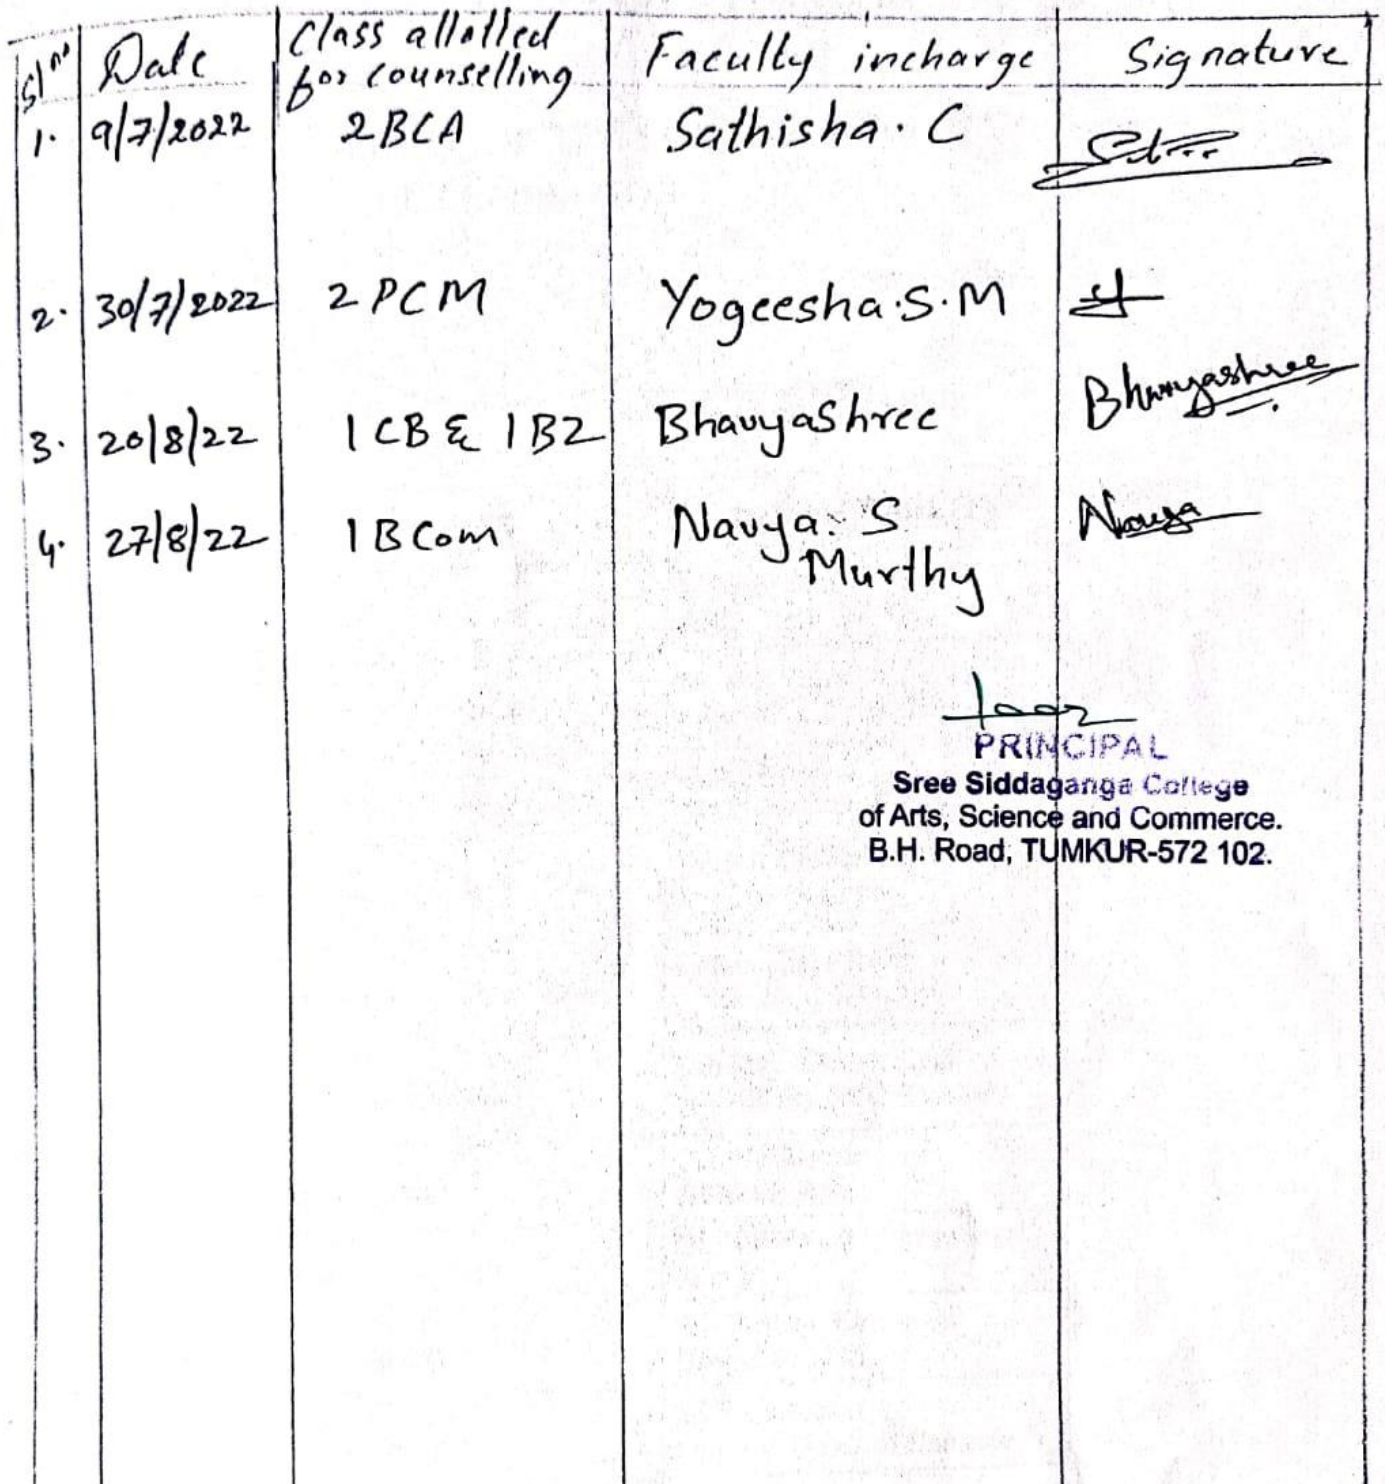 Sl no Date Class allotted for counselling Faculty incharge Signature
1. 9/7/2022 2BCA Sathisha. C
2. 30/7/2022 2 PCM Yogeesha.S.M
3. 20/8/22 1 CB & 1 BZ BhavyaShree Bhavyashree
4. 27/8/22 1 B Com Navya. S Navya
Murthy
PRINCIPAL
Sree Siddaganga College
of Arts, Science and Commerce.
B.H. Road, TUMKUR-572 102.